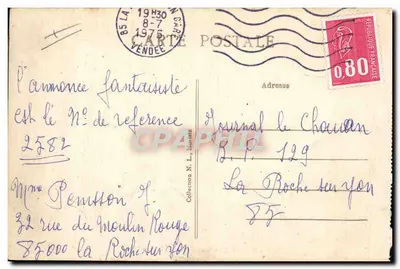 85 LA
N GARE
19H30
8-7
1975
VENDEE
CARTE POSTALE
REPUBLIQUE FRANCAISE
0,80
Adresse
l'annonce fantaisiste
est le N° de reference
2582
Mme Ponisson J
32 rue du Moulin Rouge
85000 la Roche sur yon
Collections N. L., Nantes
Journal le Chouan
B.P. 129
La Roche sur yon
85